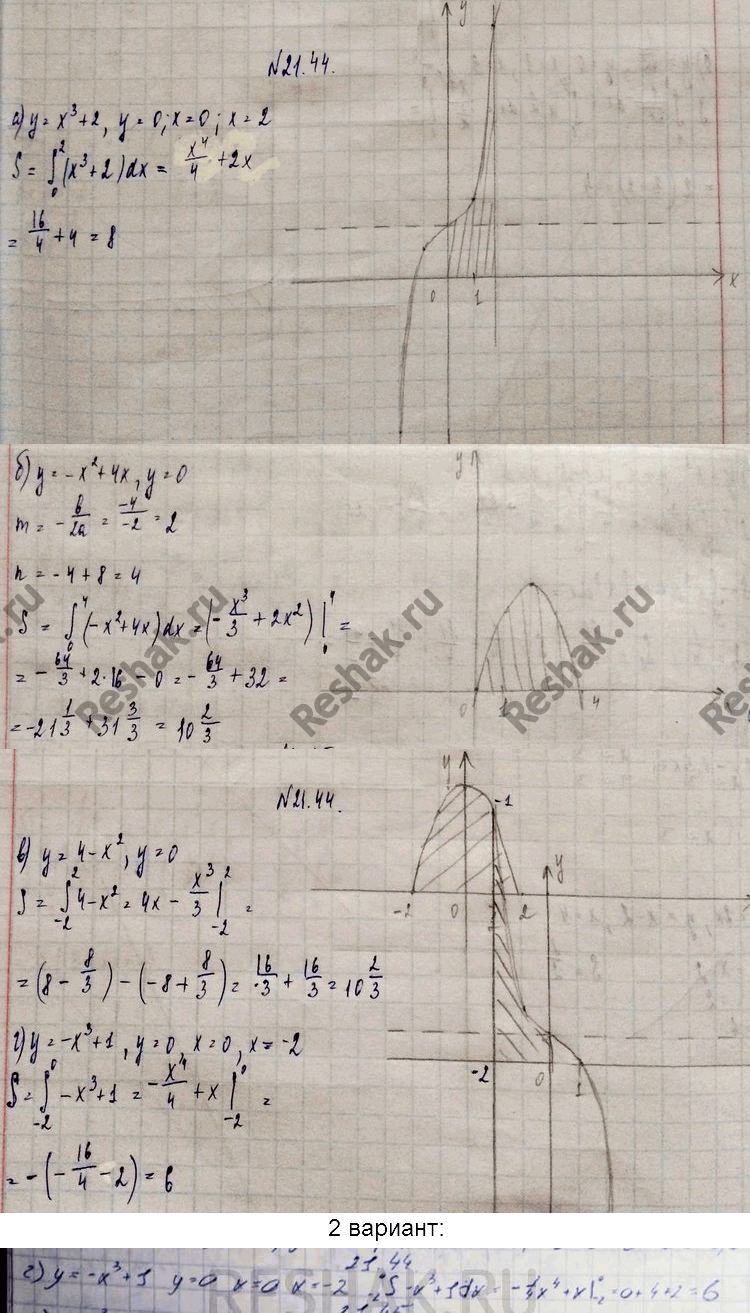 N21.44.
а) y = x³ + 2, y = 0; x = 0; x = 2
S = ∫₀² (x³ + 2) dx = x⁴/4 + 2x
= 16/4 + 4 = 8
y
x
0 1
б) y = -x² + 4x, y = 0
m = - b/2a = -4/-2 = 2
n = -4 + 8 = 4
S = ∫₀⁴ (-x² + 4x) dx = (- x³/3 + 2x²) |₀⁴ =
= - 64/3 + 2·16 - 0 = - 64/3 + 32 =
= -21 1/3 + 31 3/3 = 10 2/3
y
0 1 4
Reshak.ru
Reshak.ru
Reshak.ru
N21.44.
в) y = 4 - x², y = 0
S = ∫₋₂² 4 - x² = 4x - x³/3 |₋₂² =
= (8 - 8/3) - (-8 + 8/3) = 16/3 + 16/3 = 10 2/3
г) y = -x³ + 1, y = 0, x = 0, x = -2
S = ∫₋₂⁰ -x³ + 1 = - x⁴/4 + x |₋₂⁰ =
= -(- 16/4 - 2) = 6
y
-1
-2 0 2
y
-2 0 1
2 вариант:
21.44
г) y = -x³ + 1 y = 0 x = 0 x = -2 ∫₋₂⁰ -x³ + 1 dx = -1/4 x⁴ + x |₋₂⁰ = 0 + 4 + 2 = 6
RESHAK.RU